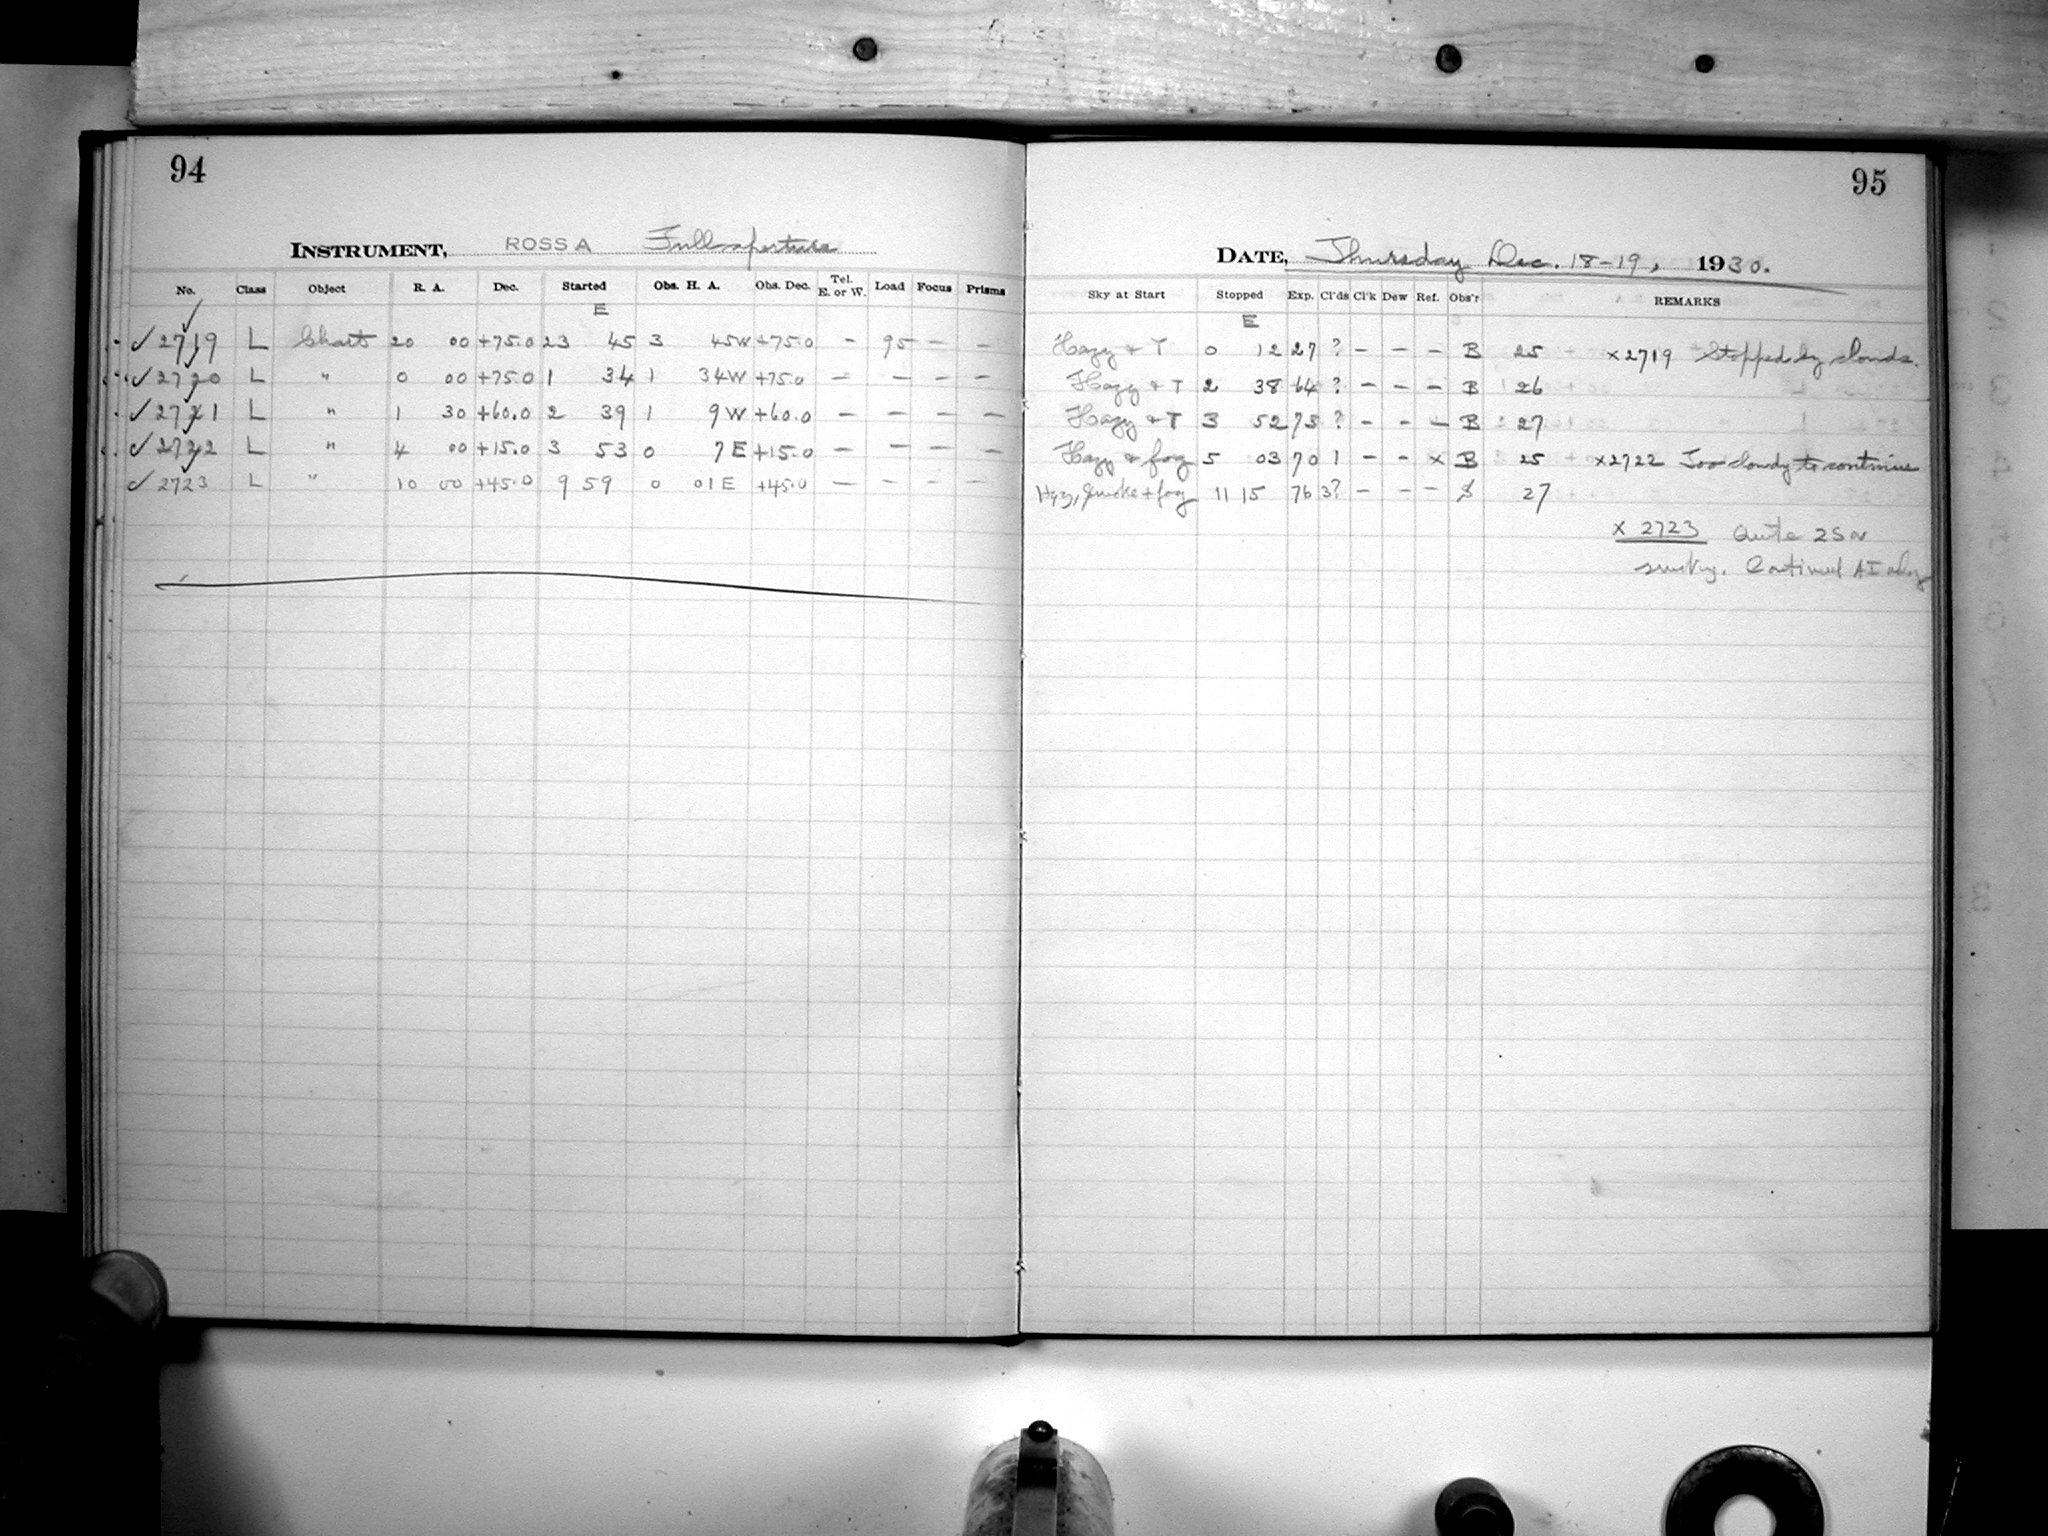 94
INSTRUMENT, ROSS A Full aperture
No. Class Object R. A. Dec. Started Obs. H. A. Obs. Dec. Tel. E. or W. Load Focus Prisms
E
✓ 2719 L Chart 20 00 +75.0 23 45 3 45W +75.0 - 95 - -
✓ 2720 L " 0 00 +75.0 1 34 1 34W +75.0 - - - -
✓ 2721 L " 1 30 +60.0 2 39 1 9W +60.0 - - - -
✓ 2722 L " 4 00 +15.0 3 53 0 7E +15.0 - - - -
✓ 2723 L " 10 00 +45.0 9 59 0 01E +45.0 - - - -
95
DATE, Thursday Dec. 18-19, 1930.
Sky at Start Stopped Exp. Cl'ds Cl'k Dew Ref. Obs'r REMARKS
E
Hazy + T 0 12 27 ? - - - B 25 x2719 Stopped by clouds.
Hazy + T 2 38 64 ? - - - B 26
Hazy + T 3 52 73 ? - - - B 27
Hazy + fog 5 03 70 1 - - x B 25 x2722 Too cloudy to continue
Hazy, smoke + fog 11 15 76 3? - - - 27
x 2723 Quite
smoky. Continued AI only